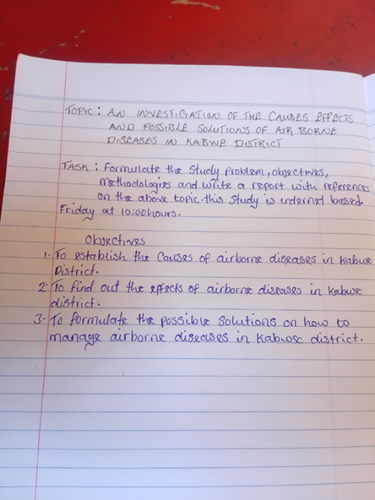 TOPIC: AN INVESTIGATION OF THE CAUSES EFFECTS
AND POSSIBLE SOLUTIONS OF AIR BORNE
DISEASES IN KABWE DISTRICT
TASK: Formulate the study problem, objectives,
methodologies and write a report with references
on the above topic. this study is based
Friday at 10:00hours.
Objectives
1. To establish the causes of airborne diseases in Kabwe
District.
2. To find out the effects of airborne diseases in Kabwe
district.
3. To formulate the possible solutions on how to
manage airborne diseases in Kabwe district.